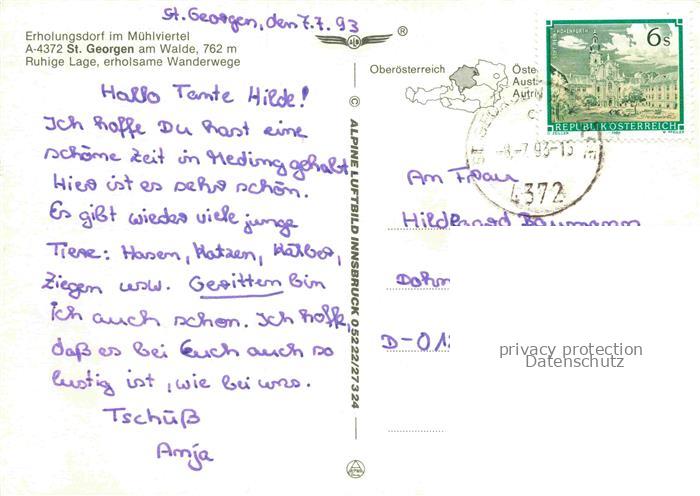 St. Georgen, den 7.7.93
Erholungsdorf im Mühlviertel
A-4372 St. Georgen am Walde, 762 m
Ruhige Lage, erholsame Wanderwege
Hallo Tante Hilde!
Ich hoffe Du hast eine
schöne Zeit in Meding gehabt.
Hier ist es sehr schön.
Es gibt wieder viele junge
Tiere: Hasen, Katzen, Kälber,
Ziegen usw. Geritten bin
ich auch schon. Ich hoffe,
daß es bei Euch auch so
lustig ist, wie bei uns.
Tschüß
Anja
© ALPINE LUFTBILD INNSBRUCK 05222/27324
®
Oberösterreich
Öste
Aust
Autri
6s
REPUBLIK ÖSTERREICH
-8.-7.93-13
4372
An Frau
Hildegard Baumann
D-01
privacy protection
Datenschutz